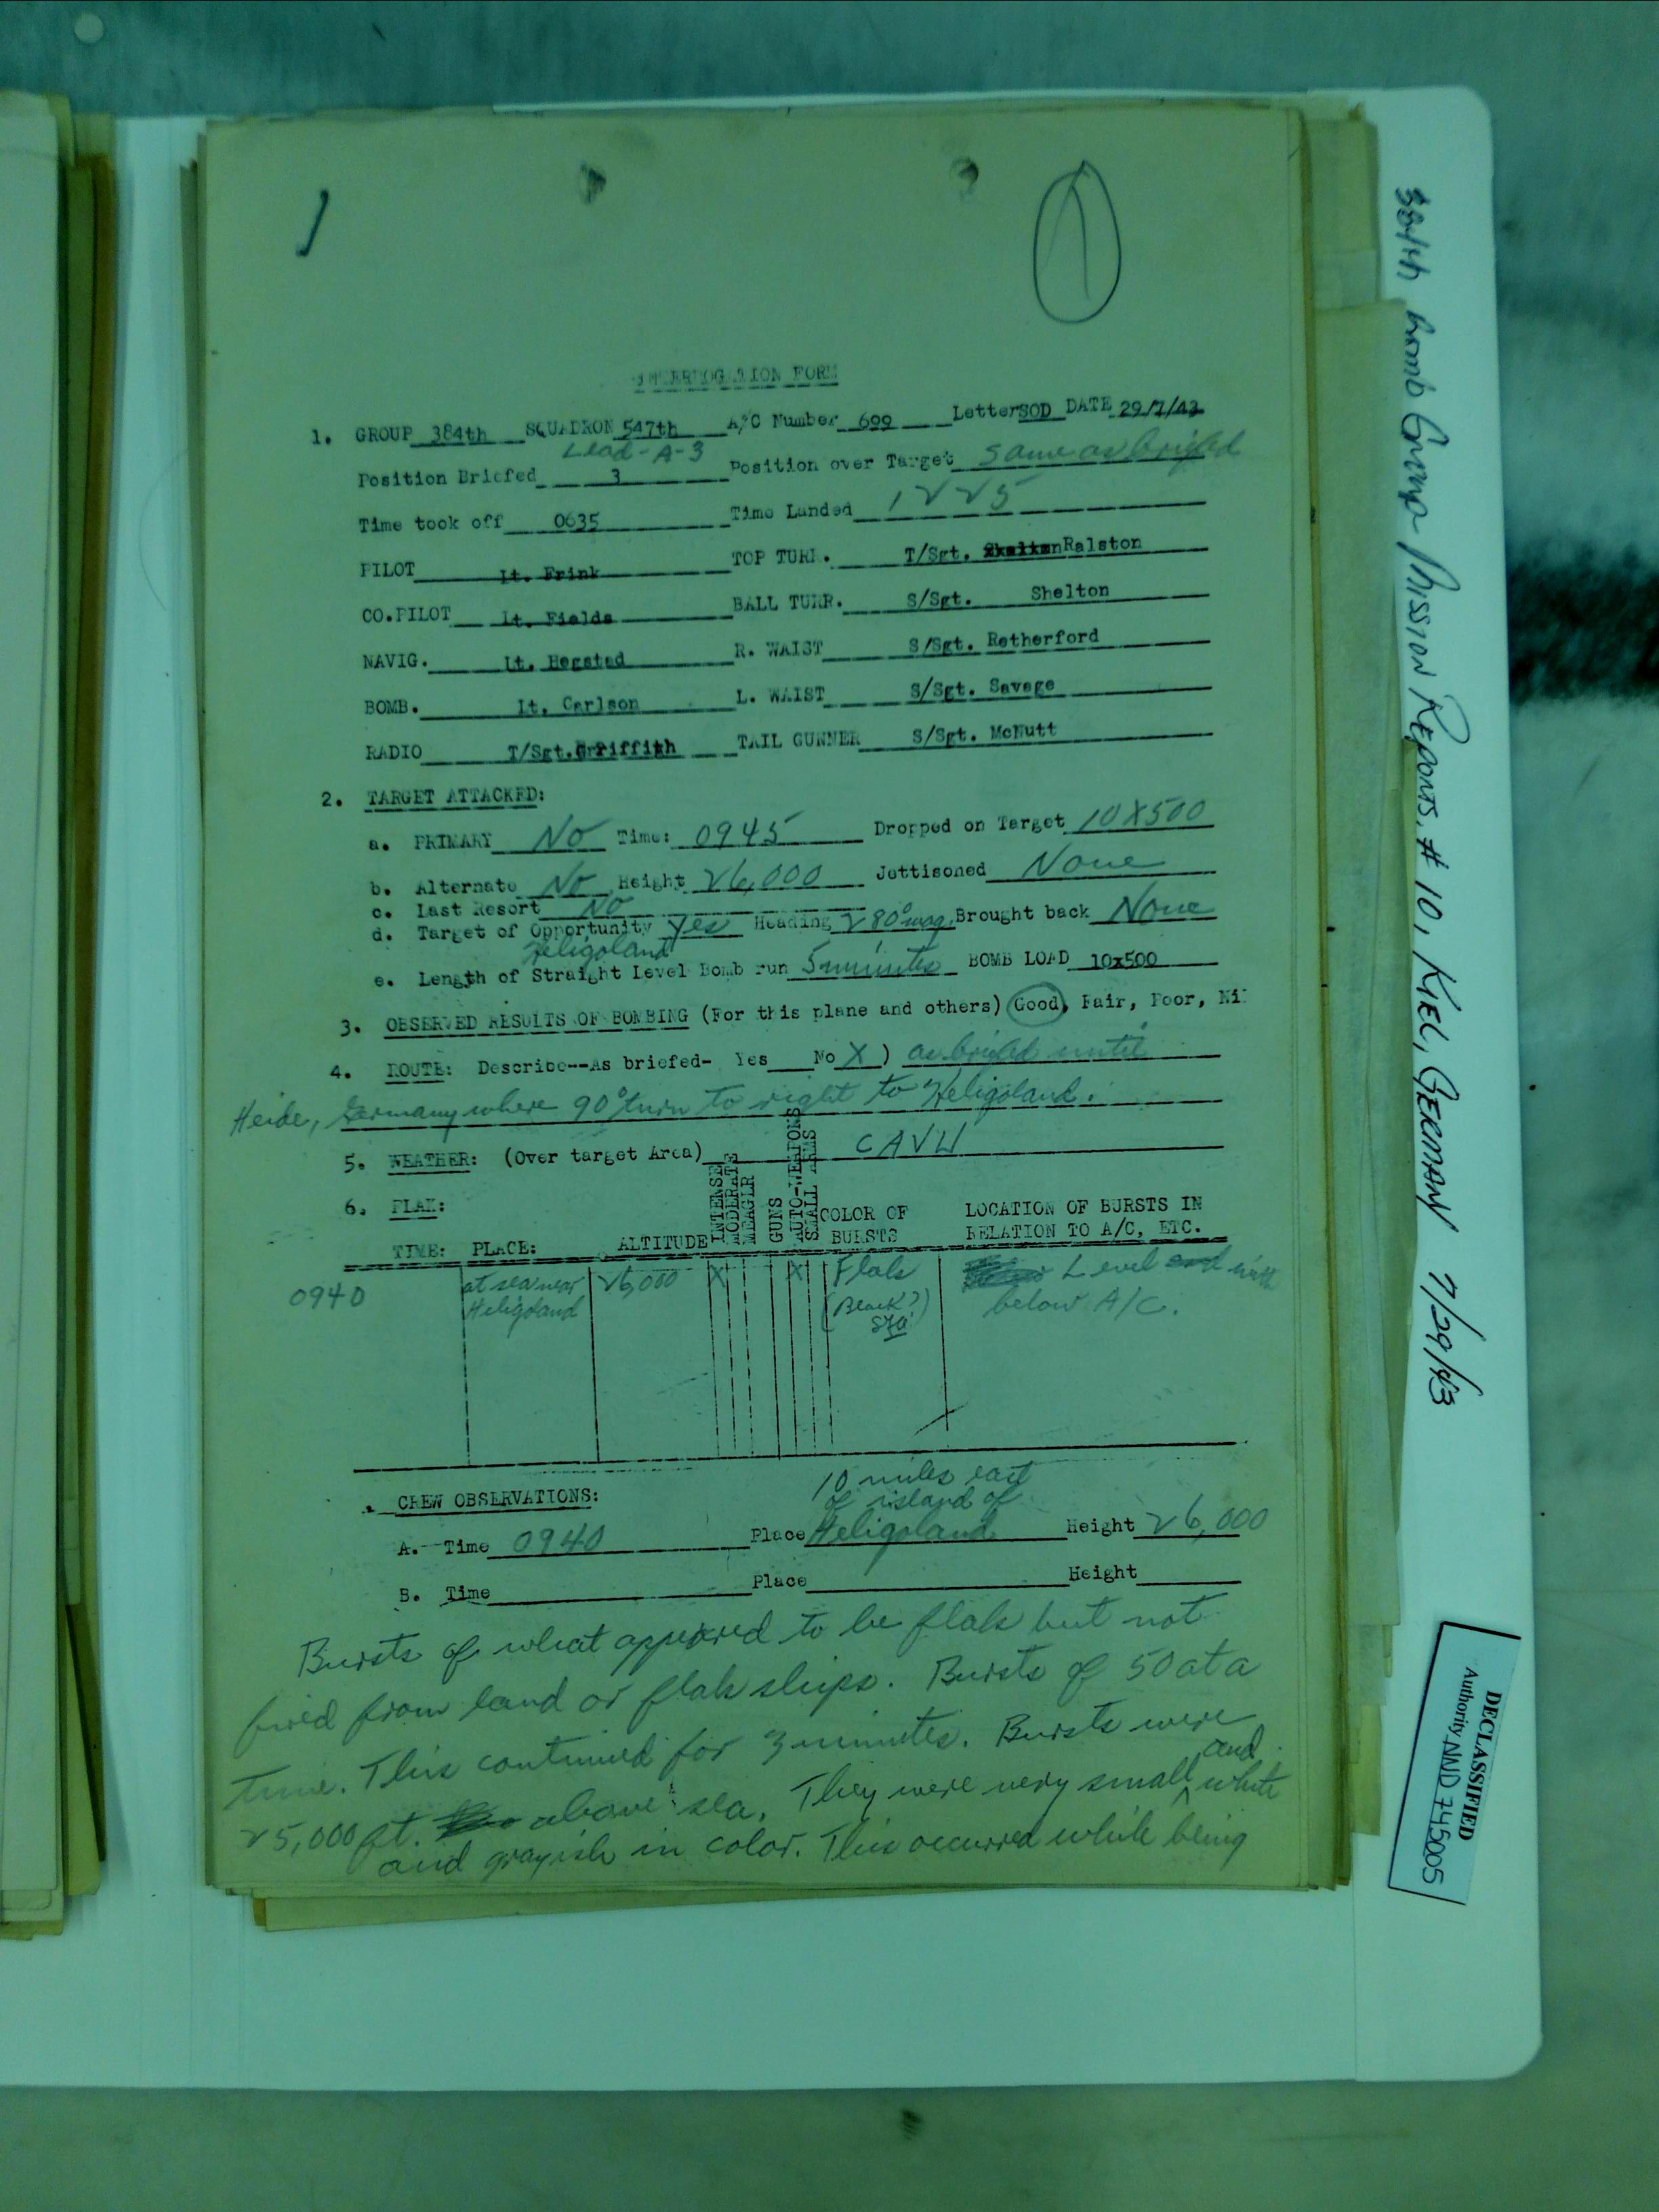 1
INTERROGATION FORM
1. GROUP 384th SQUADRON 547th A/C Number 699 Letter SOD DATE 29/7/43
Lead-A-3
Position Briefed 3 Position over Target same as briefed
Time took off 0635 Time Landed 1225
PILOT Lt. Frink TOP TURR. T/Sgt. Ralston
CO.PILOT Lt. Fields BALL TURR. S/Sgt. Shelton
NAVIG. Lt. Hegstad R. WAIST S/Sgt. Retherford
BOMB. Lt. Carlson L. WAIST S/Sgt. Savage
RADIO T/Sgt. Griffith TAIL GUNNER S/Sgt. McNutt
2. TARGET ATTACKED:
a. PRIMARY No Time: 0945 Dropped on Target 10X500
b. Alternate No Height 26,000 Jettisoned None
c. Last Resort No
d. Target of Opportunity Yes Heading 280° mag. Brought back None
Heligoland
e. Length of Straight Level Bomb run 5 minutes BOMB LOAD 10x500
3. OBSERVED RESULTS OF BOMBING (For this plane and others) Good, Fair, Poor, Nil
4. ROUTE: Describe--As briefed- Yes No X ) as briefed until
Heide, Germany where 90° turn to right to Heligoland.
5. WEATHER: (Over target Area) CAVU
6. FLAK:
TIME: PLACE: ALTITUDE INTENSE MODERATE MEAGER GUNS AUTO-WEAPONS SMALL ARMS COLOR OF BURSTS LOCATION OF BURSTS IN RELATION TO A/C, ETC.
0940 at sea near Heligoland 26,000 X X Flak (Black?) Level
below A/C.
CREW OBSERVATIONS:
10 miles east
of island of
A. Time 0940 Place Heligoland Height 26,000
B. Time Place Height
Bursts of what appeared to be flak but not
fired from land or flak ships. Bursts of 50 at a
time. This continued for 3 minutes. Bursts were
25,000 ft. above sea. They were very small and white
and grayish in color. This occurred while being
384th Bomb Group Mission Reports, # 10, KIEL, GERMANY 7/29/43
DECLASSIFIED
Authority NND 745005